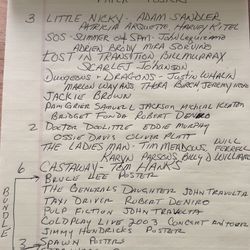 PAPER POSTERS
3 LITTLE NICKY - ADAM SANDLER
PATRICIA ARQUETTE HARVEY KITEL
SOS - SUMMER OF SAM - JOHN LEGUIZAMO
ADRIEN BRODY MIRA SORVINO
LOST IN TRANSITION BILL MURRAY
SCARLET JOHANSON
DUNGEONS + DRAGONS - JUSTIN WHALIN
MARLON WAYANS THORA BIRCH JEREMY IRONS
JACKIE BROWN
PAM GRIER SAMUEL L JACKSON MICHAEL KEATON
BRIDGET FONDA ROBERT DENIRO
2 DOCTOR DOOLITTLE EDDIE MURPHY
OSSIE DAVIS OLIVER PLATT
THE LADIES MAN - TIM MEADOWS, WILL FERRELL
KARYN PARSONS, BILLY D WILLIAMS
6 CASTAWAY - TOM HANKS
BRUCE LEE POSTER
THE GENERALS DAUGHTER JOHN TRAVOLTA
TAXI DRIVER ROBERT DENIRO
PULP FICTION JOHN TRAVOLTA
COLDPLAY LIVE 2003 CONCERT
JIMMY HENDRICKS POSTER
3 SPAWN POSTER
BUNDLE